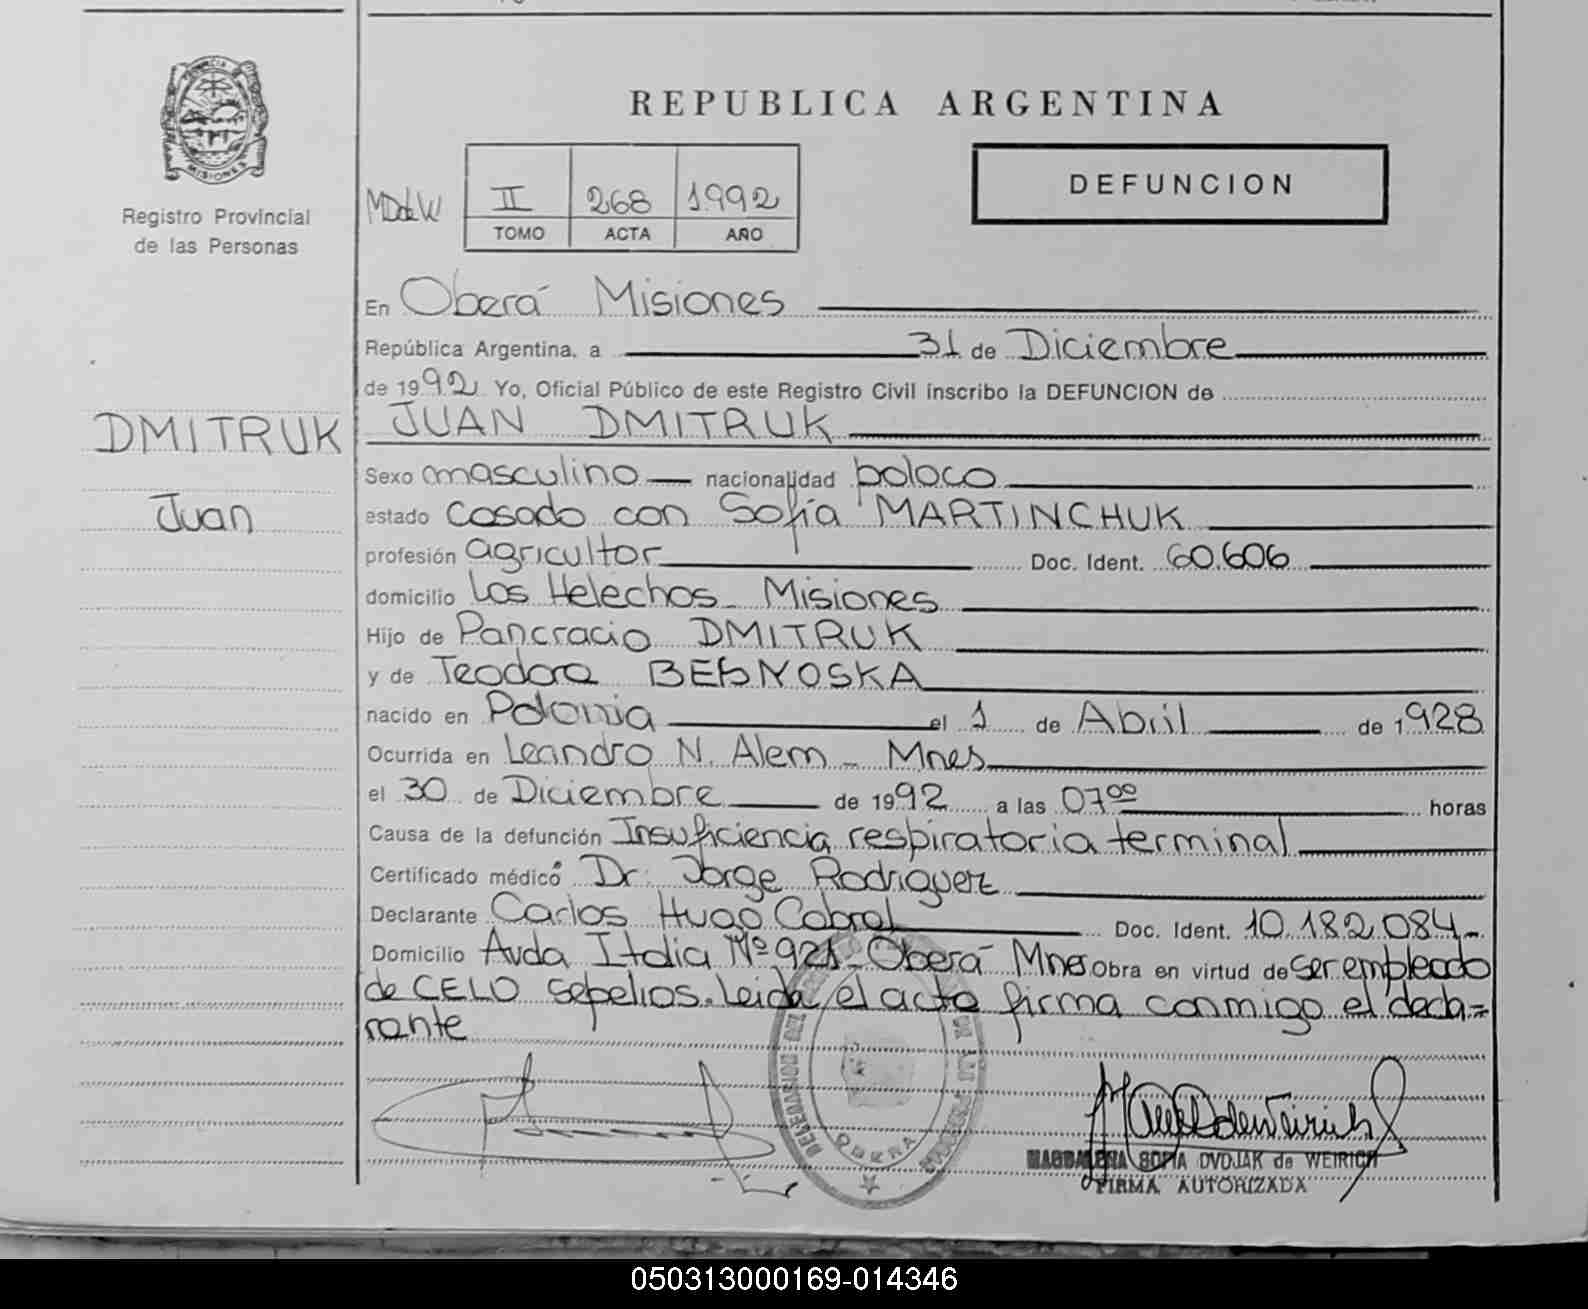 PROVINCIA DE
MISIONES
Registro Provincial
de las Personas
REPUBLICA ARGENTINA
DEFUNCION
MDdeW II 268 1992
TOMO ACTA AÑO
En Oberá Misiones
República Argentina, a 31 de Diciembre
de 1992 Yo, Oficial Público de este Registro Civil inscribo la DEFUNCION de
DMITRUK JUAN DMITRUK
Sexo masculino nacionalidad polaco
Juan estado casado con Sofía MARTINCHUK
profesión agricultor Doc. Ident. 60.606
domicilio Los Helechos - Misiones
Hijo de Pancracio DMITRUK
y de Teodora
nacido en Polonia el 1 de Abril de 1928
Ocurrida en Leandro N. Alem - Mnes
el 30 de Diciembre de 1992 a las 0700 horas
Causa de la defunción Insuficiencia respiratoria terminal
Certificado médico Dr. Jorge Rodriguez
Declarante Carlos Hugo Cabral Doc. Ident. 10.182.084-
Domicilio Avda Italia Nº 921 - Oberá Mnes Obra en virtud de ser empleado
de CELO sepelios. Leida el acta firma conmigo el decla=
rante
OBERA
MAGDALENA SOFIA DVOJAK de WEIRICH
FIRMA AUTORIZADA
050313000169-014346